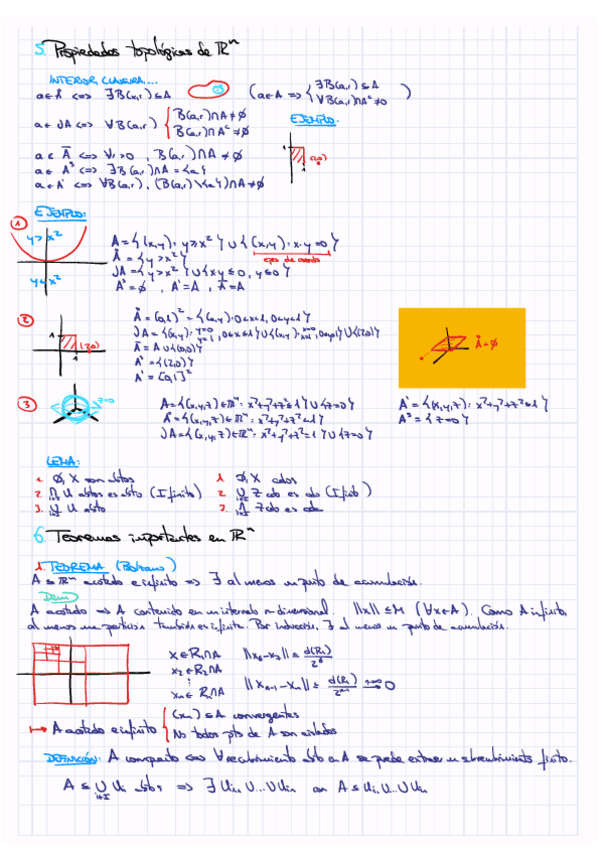 5. Propiedades topológicas de ℝⁿ
INTERIOR, CLAUSURA,...
a∈Å <=> ∃B(a,r)⊆A
(a∈A => { ∃B(a,r)⊆A
∀B(a,r)∩Aᶜ≠∅ )
a∈∂A <=> ∀B(a,r) { B(a,r)∩A≠∅
B(a,r)∩Aᶜ≠∅
EJEMPLO:
a∈Ā <=> ∀r>0, B(a,r)∩A≠∅
a∈Aˢ <=> ∃B(a,r)∩A={a}
a∈A' <=> ∀B(a,r), (B(a,r)\{a})∩A≠∅
1
(2,0)
EJEMPLO:
1
y>x²
y<x²
A={(x,y): y≥x²}∪{(x,y): x·y=0}
ejes de coords
Å={y>x²}
∂A={y>x²}∪{xy≤0, y≤0}
Aˢ=∅, A'=A, Ā=A
2
1
(2,0)
Å=(0,1)²={(x,y): 0<x<1, 0<y<1}
Ā=A∪{(0,0)}
Aˢ={(2,0)}
A'=[0,1]²
Å=∅
3
z=0
A={(x,y,z)∈ℝⁿ: x²+y²+z²≤1}∪{z=0}
Å={(x,y,z)∈ℝⁿ: x²+y²+z²<1}
∂A={(x,y,z)∈ℝⁿ: x²+y²+z²=1}∪{z=0}
A'={(x,y,z): x²+y²+z²≤1}
Aˢ={z=0}
LEMA:
1. ∅, X son abtos
2. ∩ U abtos es abto (I finito)
i∈I
3. ∪ U abto
i∈I
1. ∅, X cdos
2. ∪ Z cdo es cdo (I finito)
i∈I
3. ∩ Z cdo es cdo
i∈I
6. Teoremas importantes en ℝⁿ
1. TEOREMA (Bolzano)
A⊆ℝⁿ acotado e infinito => ∃ al menos un punto de acumulación.
Dem
A acotado => A contenido en un intervalo n-dimensional. ||x||≤M (∀x∈A). Como A infinito,
al menos una partición también es infinita. Por inducción, ∃ al menos un punto de acumulación.
x∈R₁∩A
x₂∈R₂∩A
⋮
xₙ∈Rₙ∩A
-> A acotado e infinito { (xₙ)⊆A convergentes
No todos pto de A son aislados
DEFINICIÓN: A compacto <=> ∀ recubrimiento abto en A se puede extraer un subrecubrimiento finito.
A⊆∪Uᵢ abtos => ∃Uᵢ₁∪...∪Uᵢₙ con A⊆Uᵢ₁∪...∪Uᵢₙ
i∈I